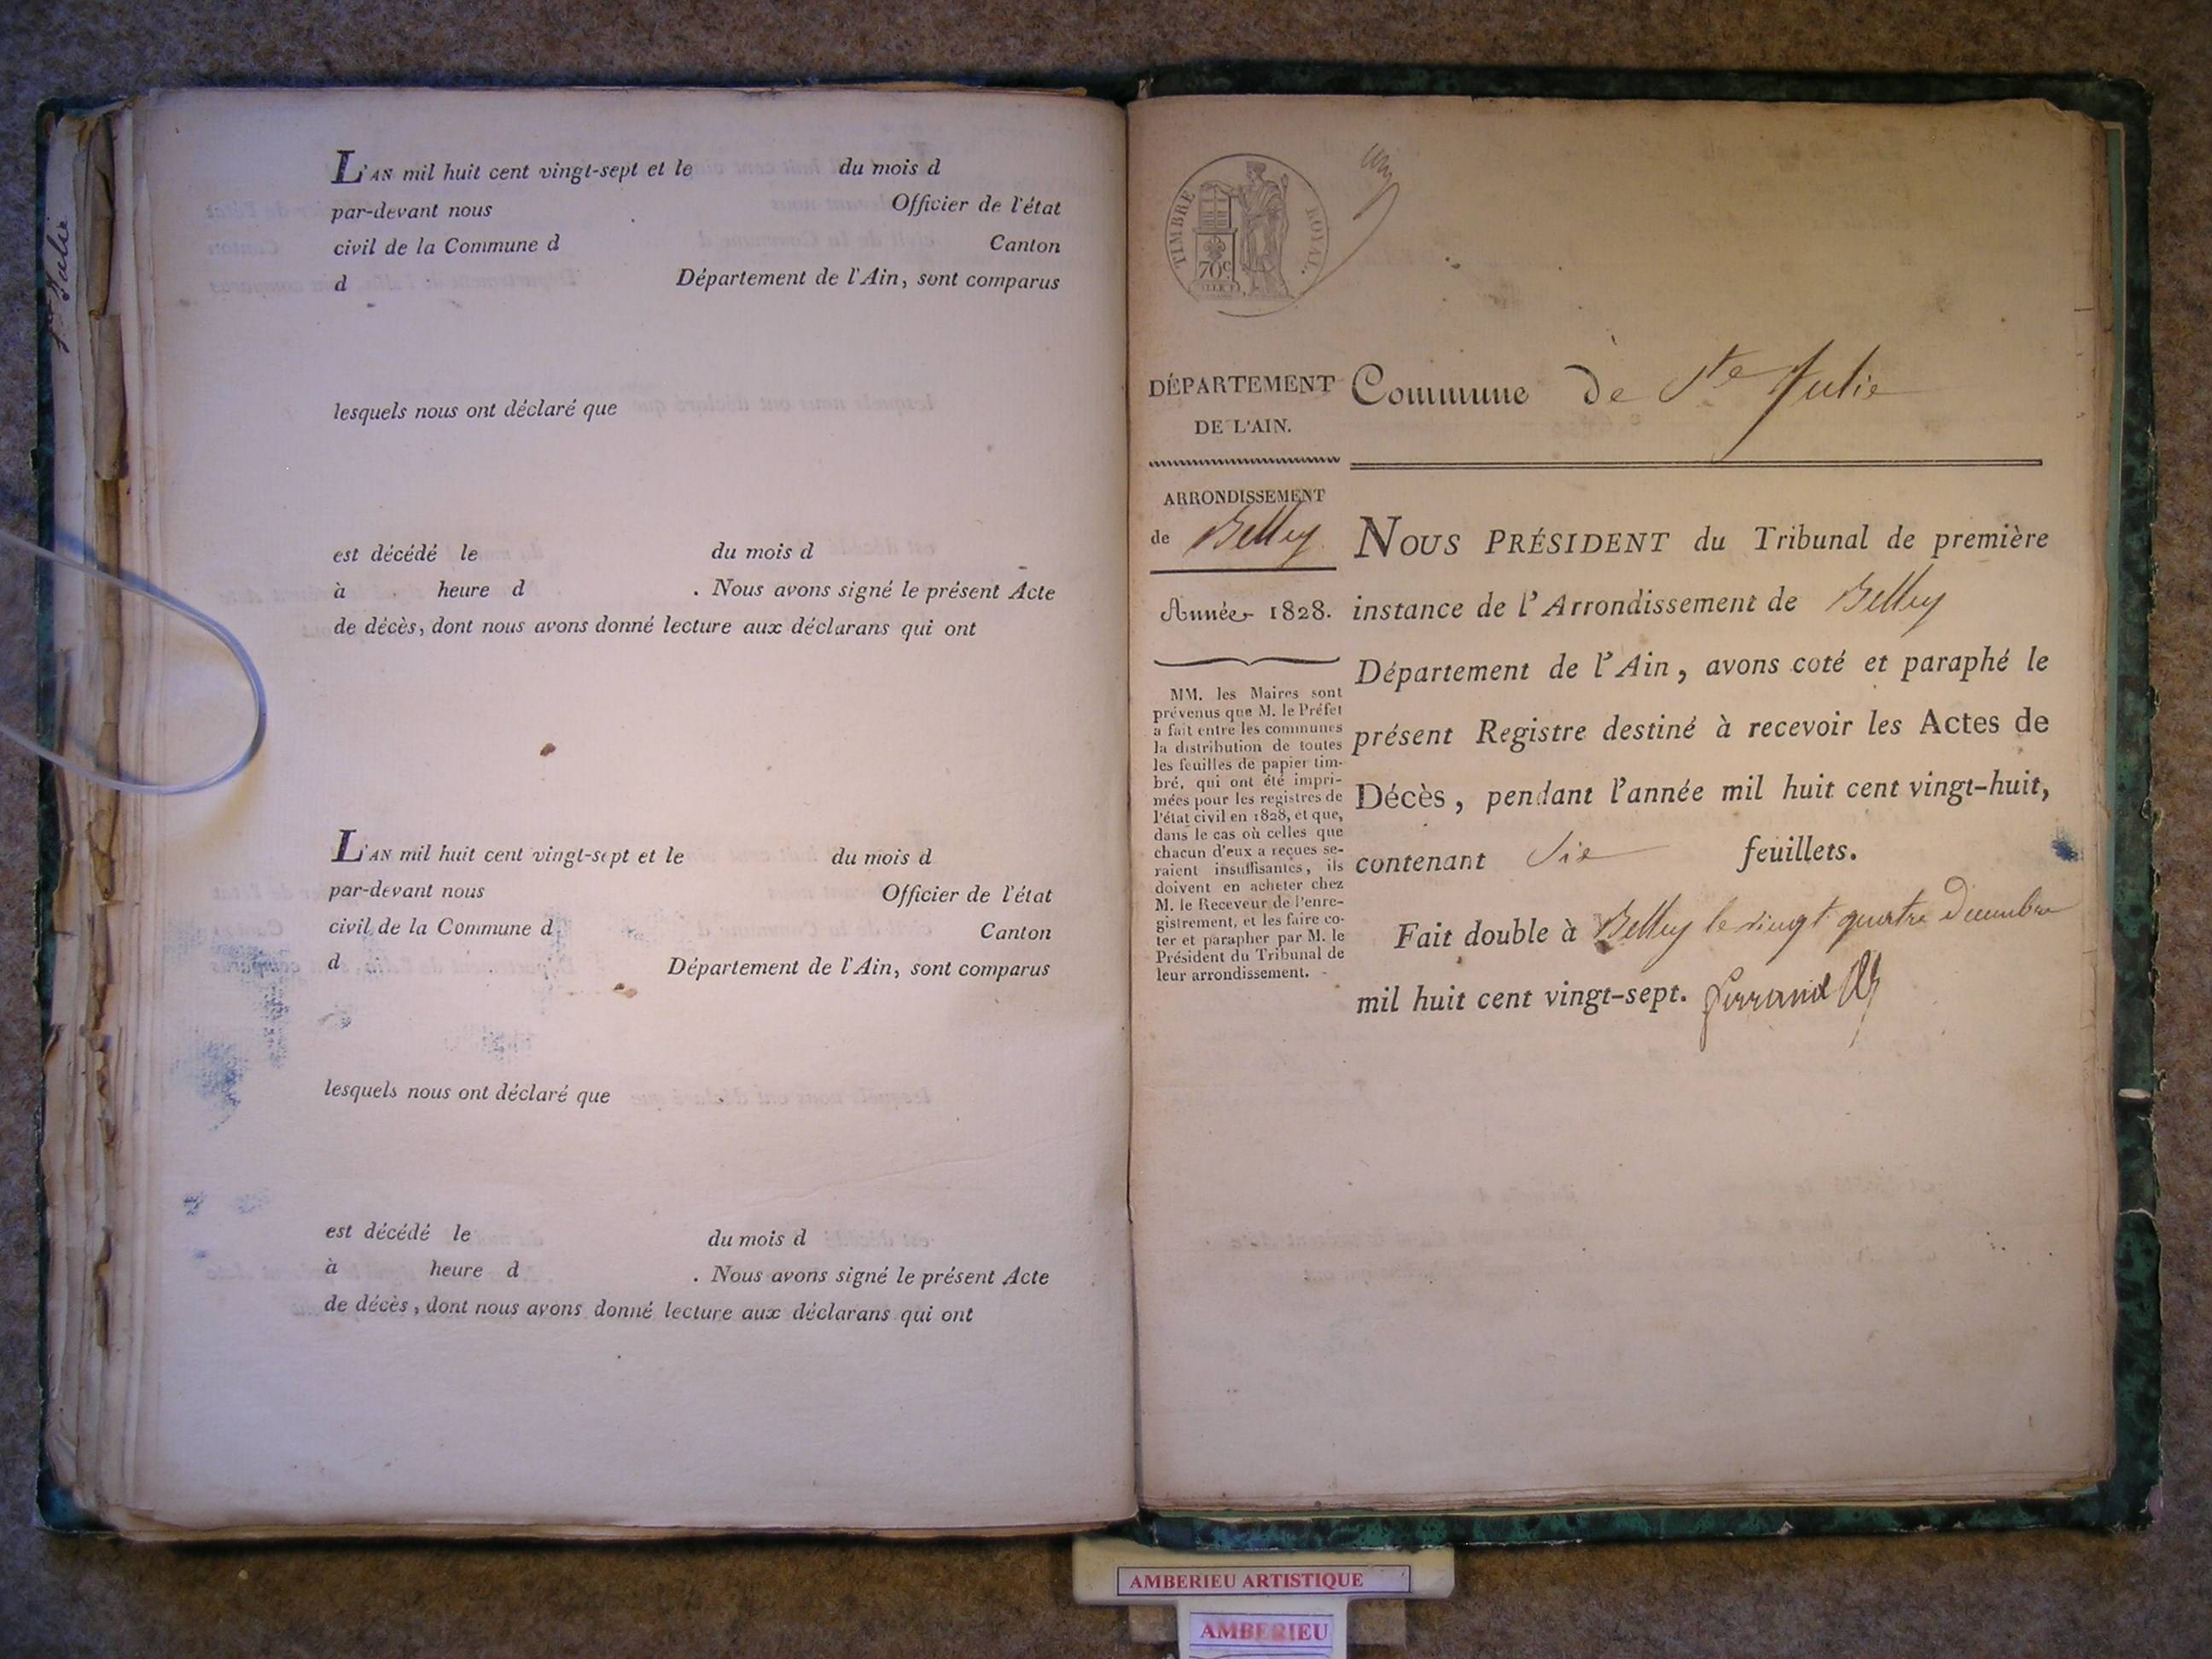 Ste Julie
L'AN mil huit cent vingt-sept et le du mois d
par-devant nous Officier de l'état
civil de la Commune d Canton
d Département de l'Ain, sont comparus
lesquels nous ont déclaré que
est décédé le du mois d
à heure d . Nous avons signé le présent Acte
de décès, dont nous avons donné lecture aux déclarans qui ont
L'AN mil huit cent vingt-sept et le du mois d
par-devant nous Officier de l'état
civil de la Commune d Canton
d Département de l'Ain, sont comparus
lesquels nous ont déclaré que
est décédé le du mois d
à heure d . Nous avons signé le présent Acte
de décès, dont nous avons donné lecture aux déclarans qui ont
TIMBRE ROYAL.
70c
DÉPARTEMENT
DE L'AIN.
ARRONDISSEMENT
de Belley
Année 1828.
MM. les Maires sont
prévenus que M. le Préfet
a fait entre les communes
la distribution de toutes
les feuilles de papier tim-
bré, qui ont été impri-
mées pour les registres de
l'état civil en 1828, et que,
dans le cas où celles que
chacun d'eux a reçues se-
raient insuffisantes, ils
doivent en acheter chez
M. le Receveur de l'enre-
gistrement, et les faire co-
ter et parapher par M. le
Président du Tribunal de
leur arrondissement.
Commune de Ste Julie
NOUS PRÉSIDENT du Tribunal de première
instance de l'Arrondissement de Belley
Département de l'Ain, avons coté et paraphé le
présent Registre destiné à recevoir les Actes de
Décès, pendant l'année mil huit cent vingt-huit,
contenant Six feuillets.
Fait double à Belley le vingt quatre Decembre
mil huit cent vingt-sept.
AMBERIEU ARTISTIQUE
AMBERIEU